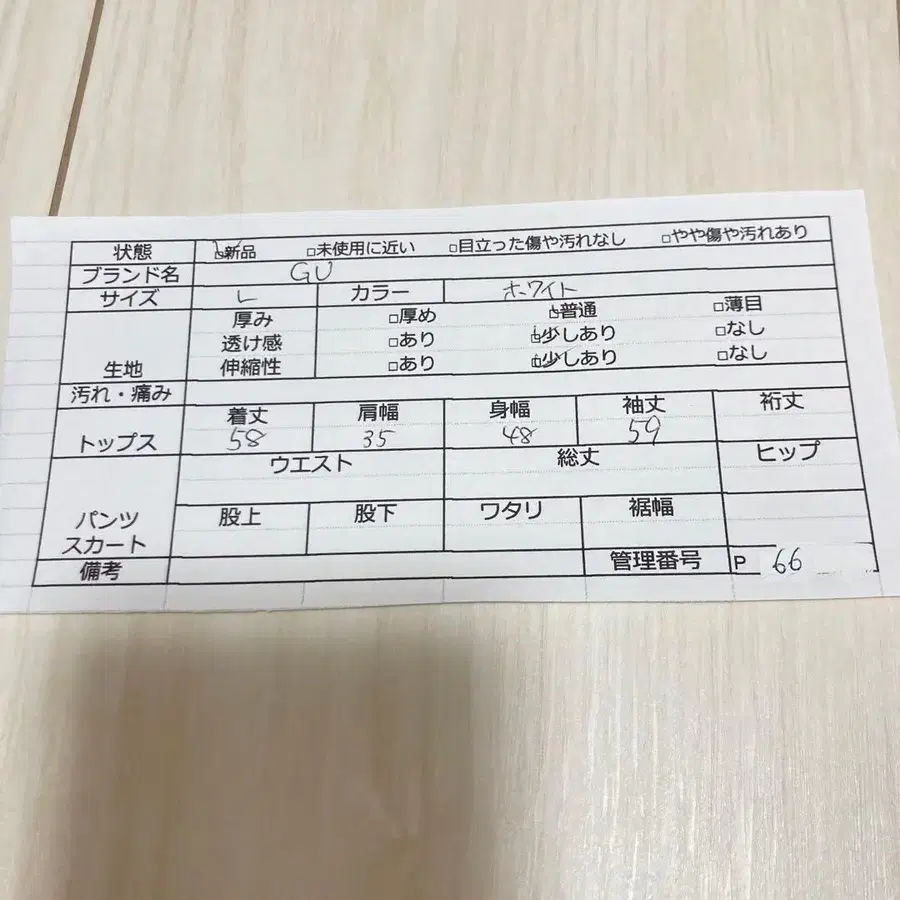 状態 ☑新品 □未使用に近い □目立った傷や汚れなし □やや傷や汚れあり
ブランド名 GU
サイズ L カラー ホワイト
生地 厚み □厚め ☑普通 □薄目
透け感 □あり ☑少しあり □なし
伸縮性 □あり ☑少しあり □なし
汚れ・痛み
トップス 着丈 肩幅 身幅 袖丈 裄丈
58 35 48 59
パンツ スカート ウエスト 総丈 ヒップ
股上 股下 ワタリ 裾幅
備考 管理番号 P 66